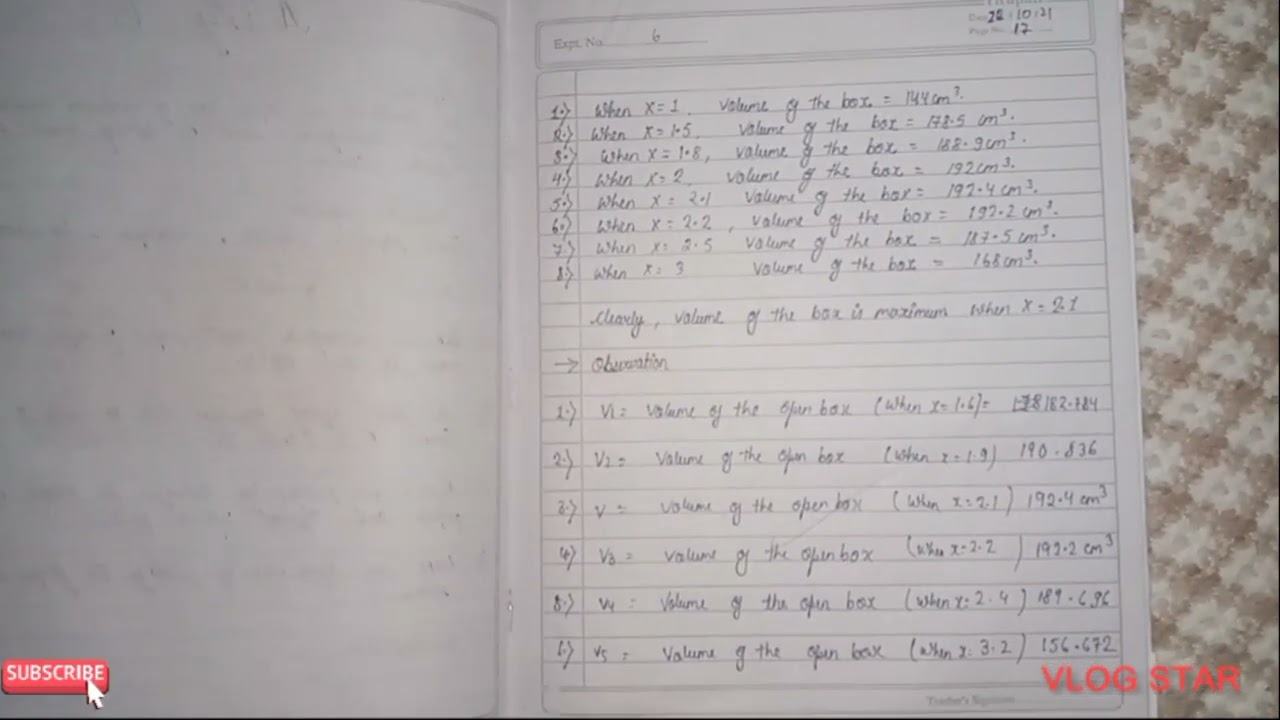 Expt. No. 6
Date 22.10.21
Page No. 17
1.) When x=1, volume of the box = 144cm³.
2.) When x=1.5, volume of the box = 178.5 cm³.
3.) When x=1.8, volume of the box = 188.9cm³.
4.) When x=2, volume of the box = 192cm³.
5.) When x=2.1 volume of the box = 192.4cm³.
6.) When x=2.2, volume of the box = 192.2 cm³.
7.) When x=2.5 volume of the box = 187.5 cm³.
8.) When x=3 volume of the box = 168cm³.
Clearly, volume of the box is maximum when x=2.1
→ Observation
1.) V1= volume of the open box (when x=1.6)= 182.784
2.) V2= volume of the open box (when x=1.9) 190.836
3.) V= volume of the open box (when x=2.1) 192.4 cm³
4.) V3= volume of the open box (when x=2.2) 192.2 cm³
5.) V4= volume of the open box (when x=2.4) 189.696
6.) V5= volume of the open box (when x=3.2) 156.672
Teacher's Signature
SUBSCRIBE
VLOG STAR